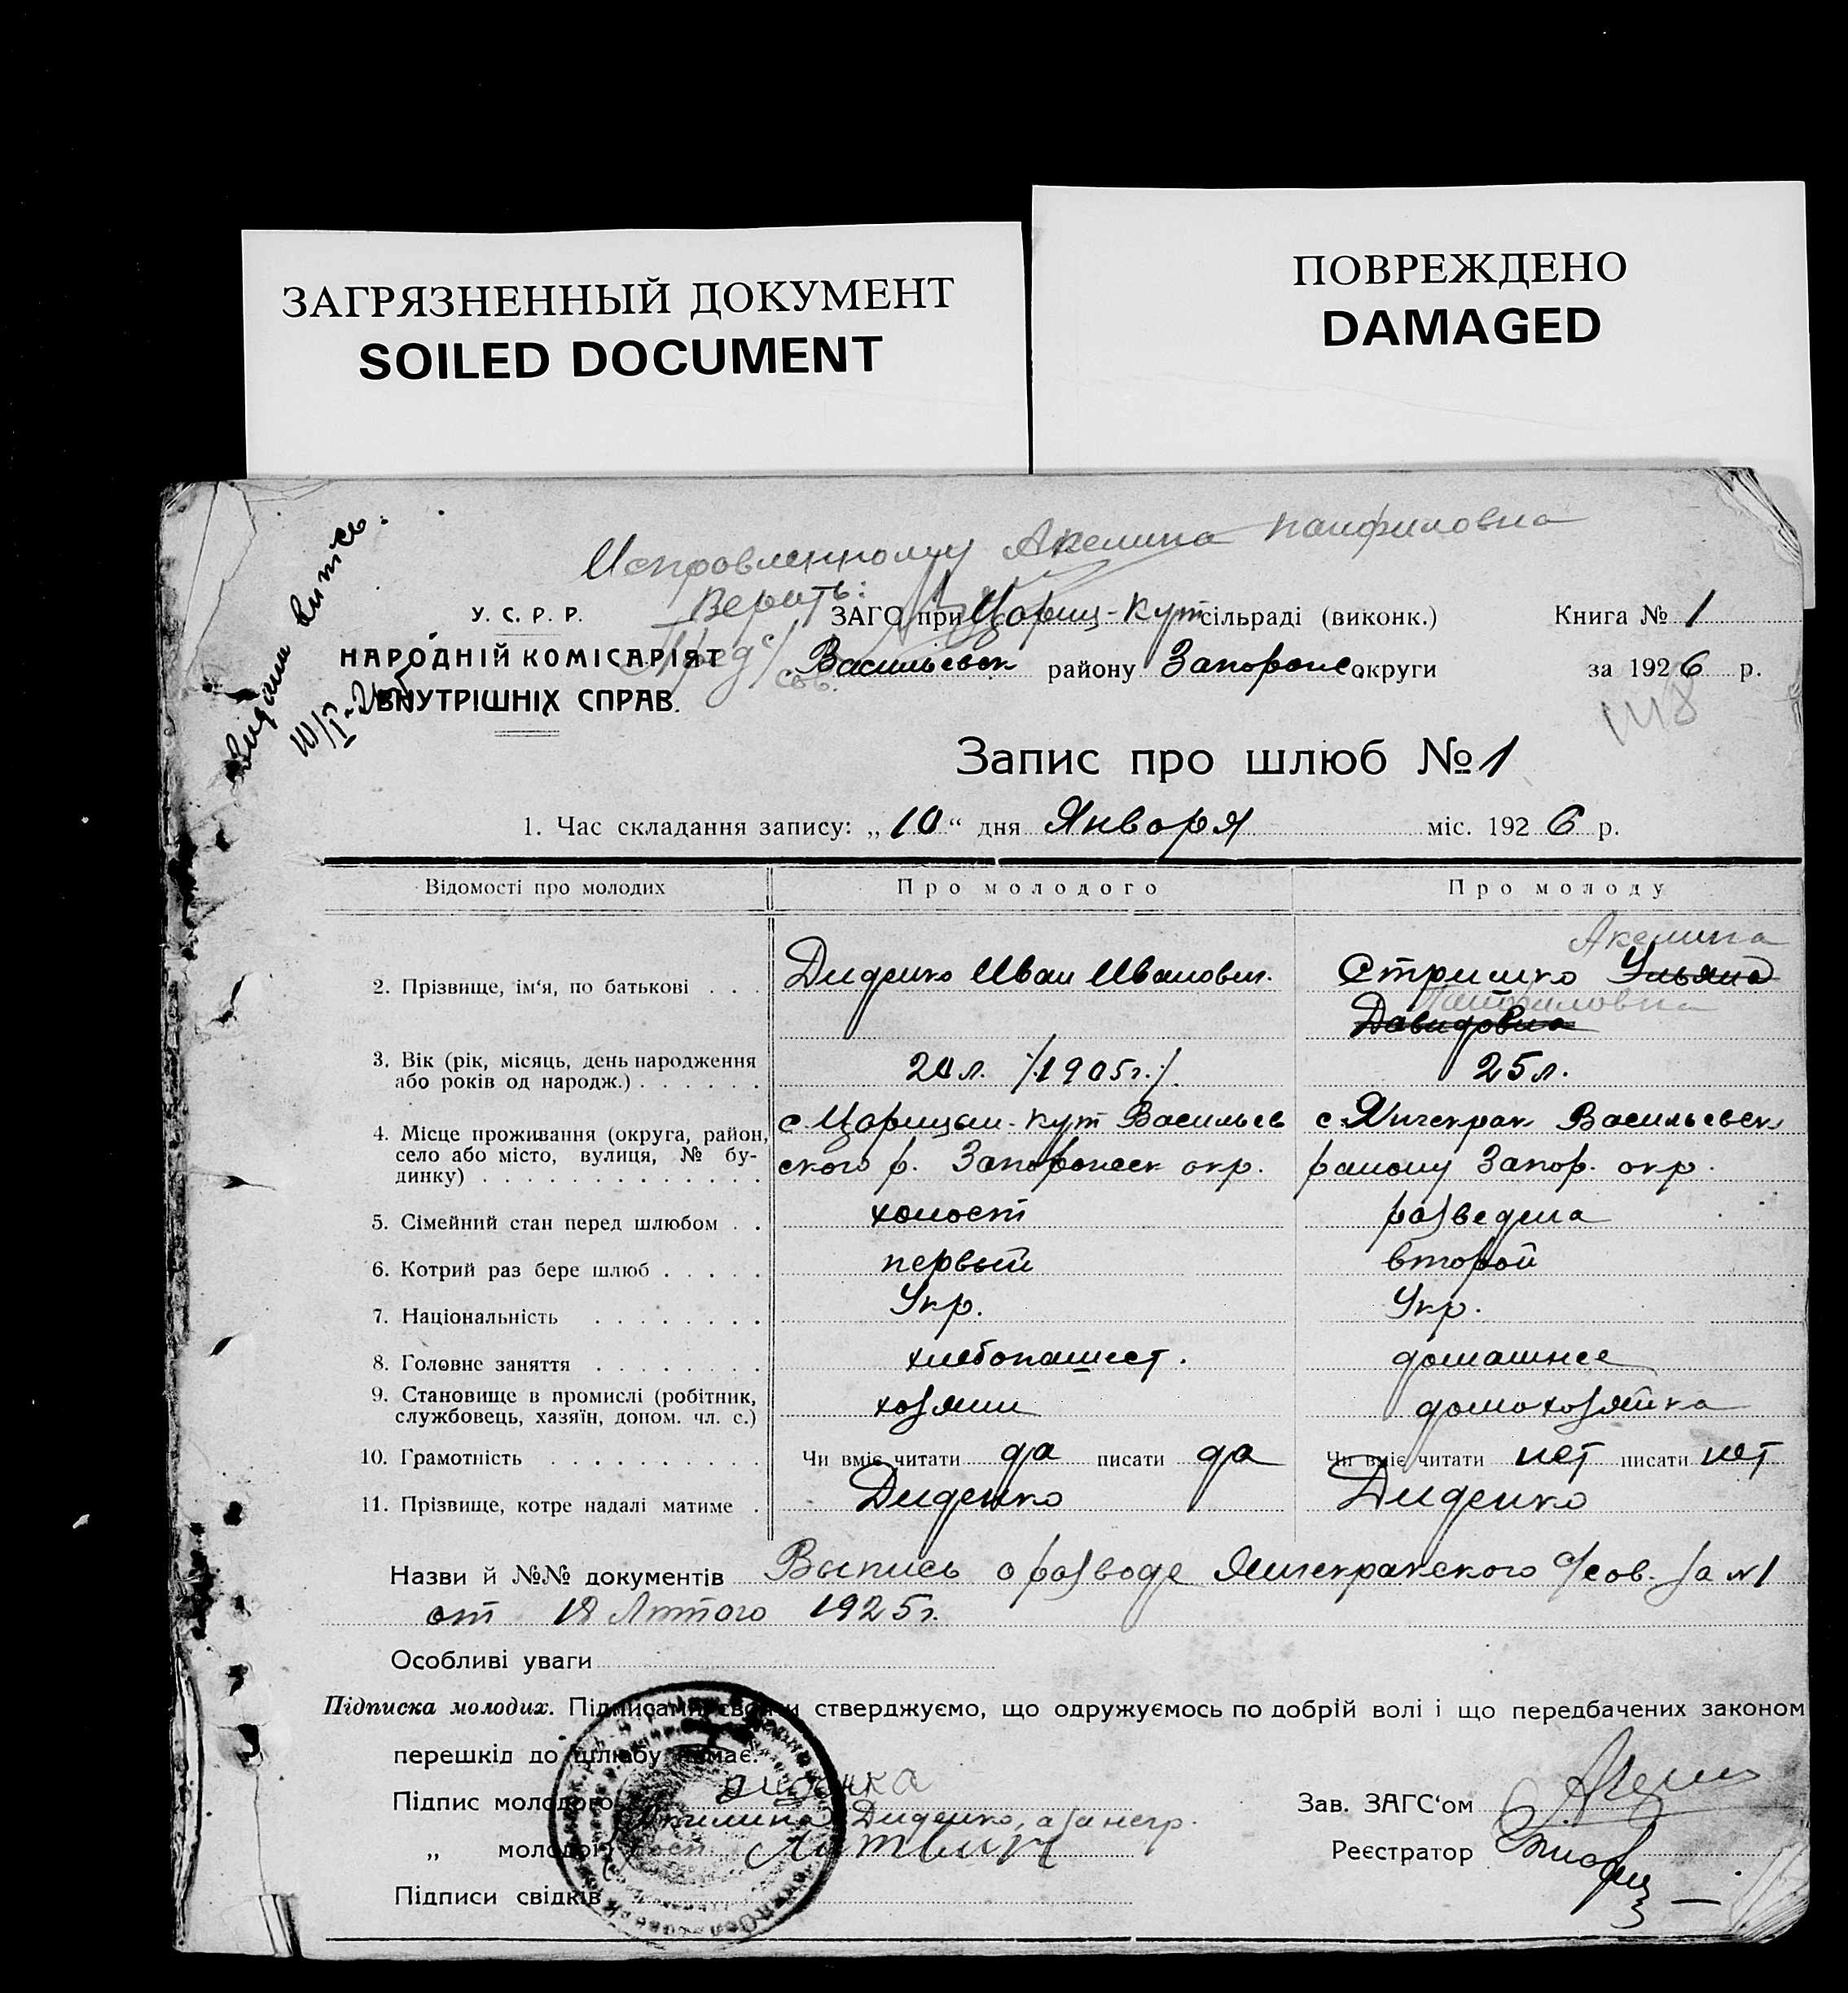 ЗАГРЯЗНЕННЫЙ ДОКУМЕНТ
SOILED DOCUMENT
ПОВРЕЖДЕНО
DAMAGED
Исправленному Акелина Панфиловна
Верить:
Пред с/сов.
Видали випись.
У. С. Р. Р.
НАРОДНІЙ КОМІСАРІЯТ
ВНУТРІШНІХ СПРАВ.
ЗАГС при Цариц-Кут сільраді (виконк.)
Васильевск району Запорож округи
Книга № 1
за 1926 р.
Запис про шлюб № 1
1. Час складання запису: „10“ дня Января міс. 1926 р.
Відомості про молодих Про молодого Про молоду
Акелина
2. Прізвище, ім‘я, по батькові . . . Диденко Иван Иванович. Стришко Ульяна
Панфиловна
Давидовна
3. Вік (рік, місяць, день народження
або років од народж.) . . . . . . 20 л. /1905 г./. 25 л.
4. Місце проживання (округа, район, с Царицын-Кут Васильев с Янчекрак Васильевск
село або місто, вулиця, № бу- ского р. Запорожск окр. району Запор. окр.
динку) . . . . . . . . . . . . .
5. Сімейний стан перед шлюбом . . холост розведена
6. Котрий раз бере шлюб . . . . . первый второй
7. Національність . . . . . . . . Укр. Укр.
8. Головне заняття . . . . . . . . хлебопашест. домашнее
9. Становище в промислі (робітник,
службовець, хазяїн, допом. чл. с.) хозяин домохозяйка
10. Грамотність . . . . . . . . . . Чи вміє читати да писати да Чи вміє читати нет писати нет
11. Прізвище, котре надалі матиме . Диденко Диденко
Назви й №№ документів Выпись о розводе Янчекракского с/сов. за №1
от 18 Лютого 1925 г.
Особливі уваги
Підписка молодих. Підписами своїми стверджуємо, що одружуємось по добрій волі і що передбачених законом
перешкід до шлюбу немає.
Підпис молодого Диденка
„ молодої Акилина Диденко, а за негр.
Підписи свідків
Зав. ЗАГС‘ом
Реєстратор